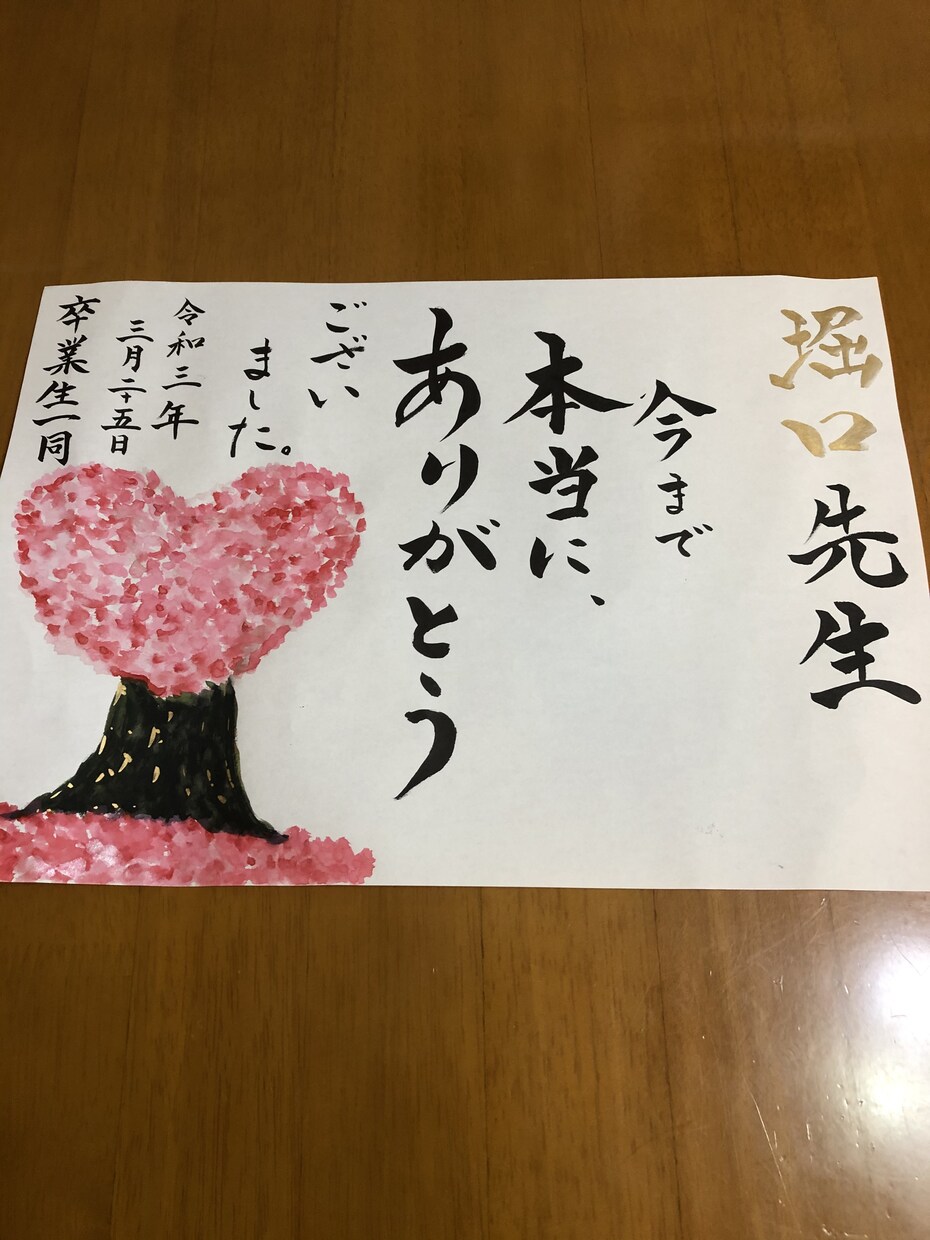 堀口先生
今まで
本当に、
ありがとう
ござい
ました。
令和三年
三月二十五日
卒業生一同